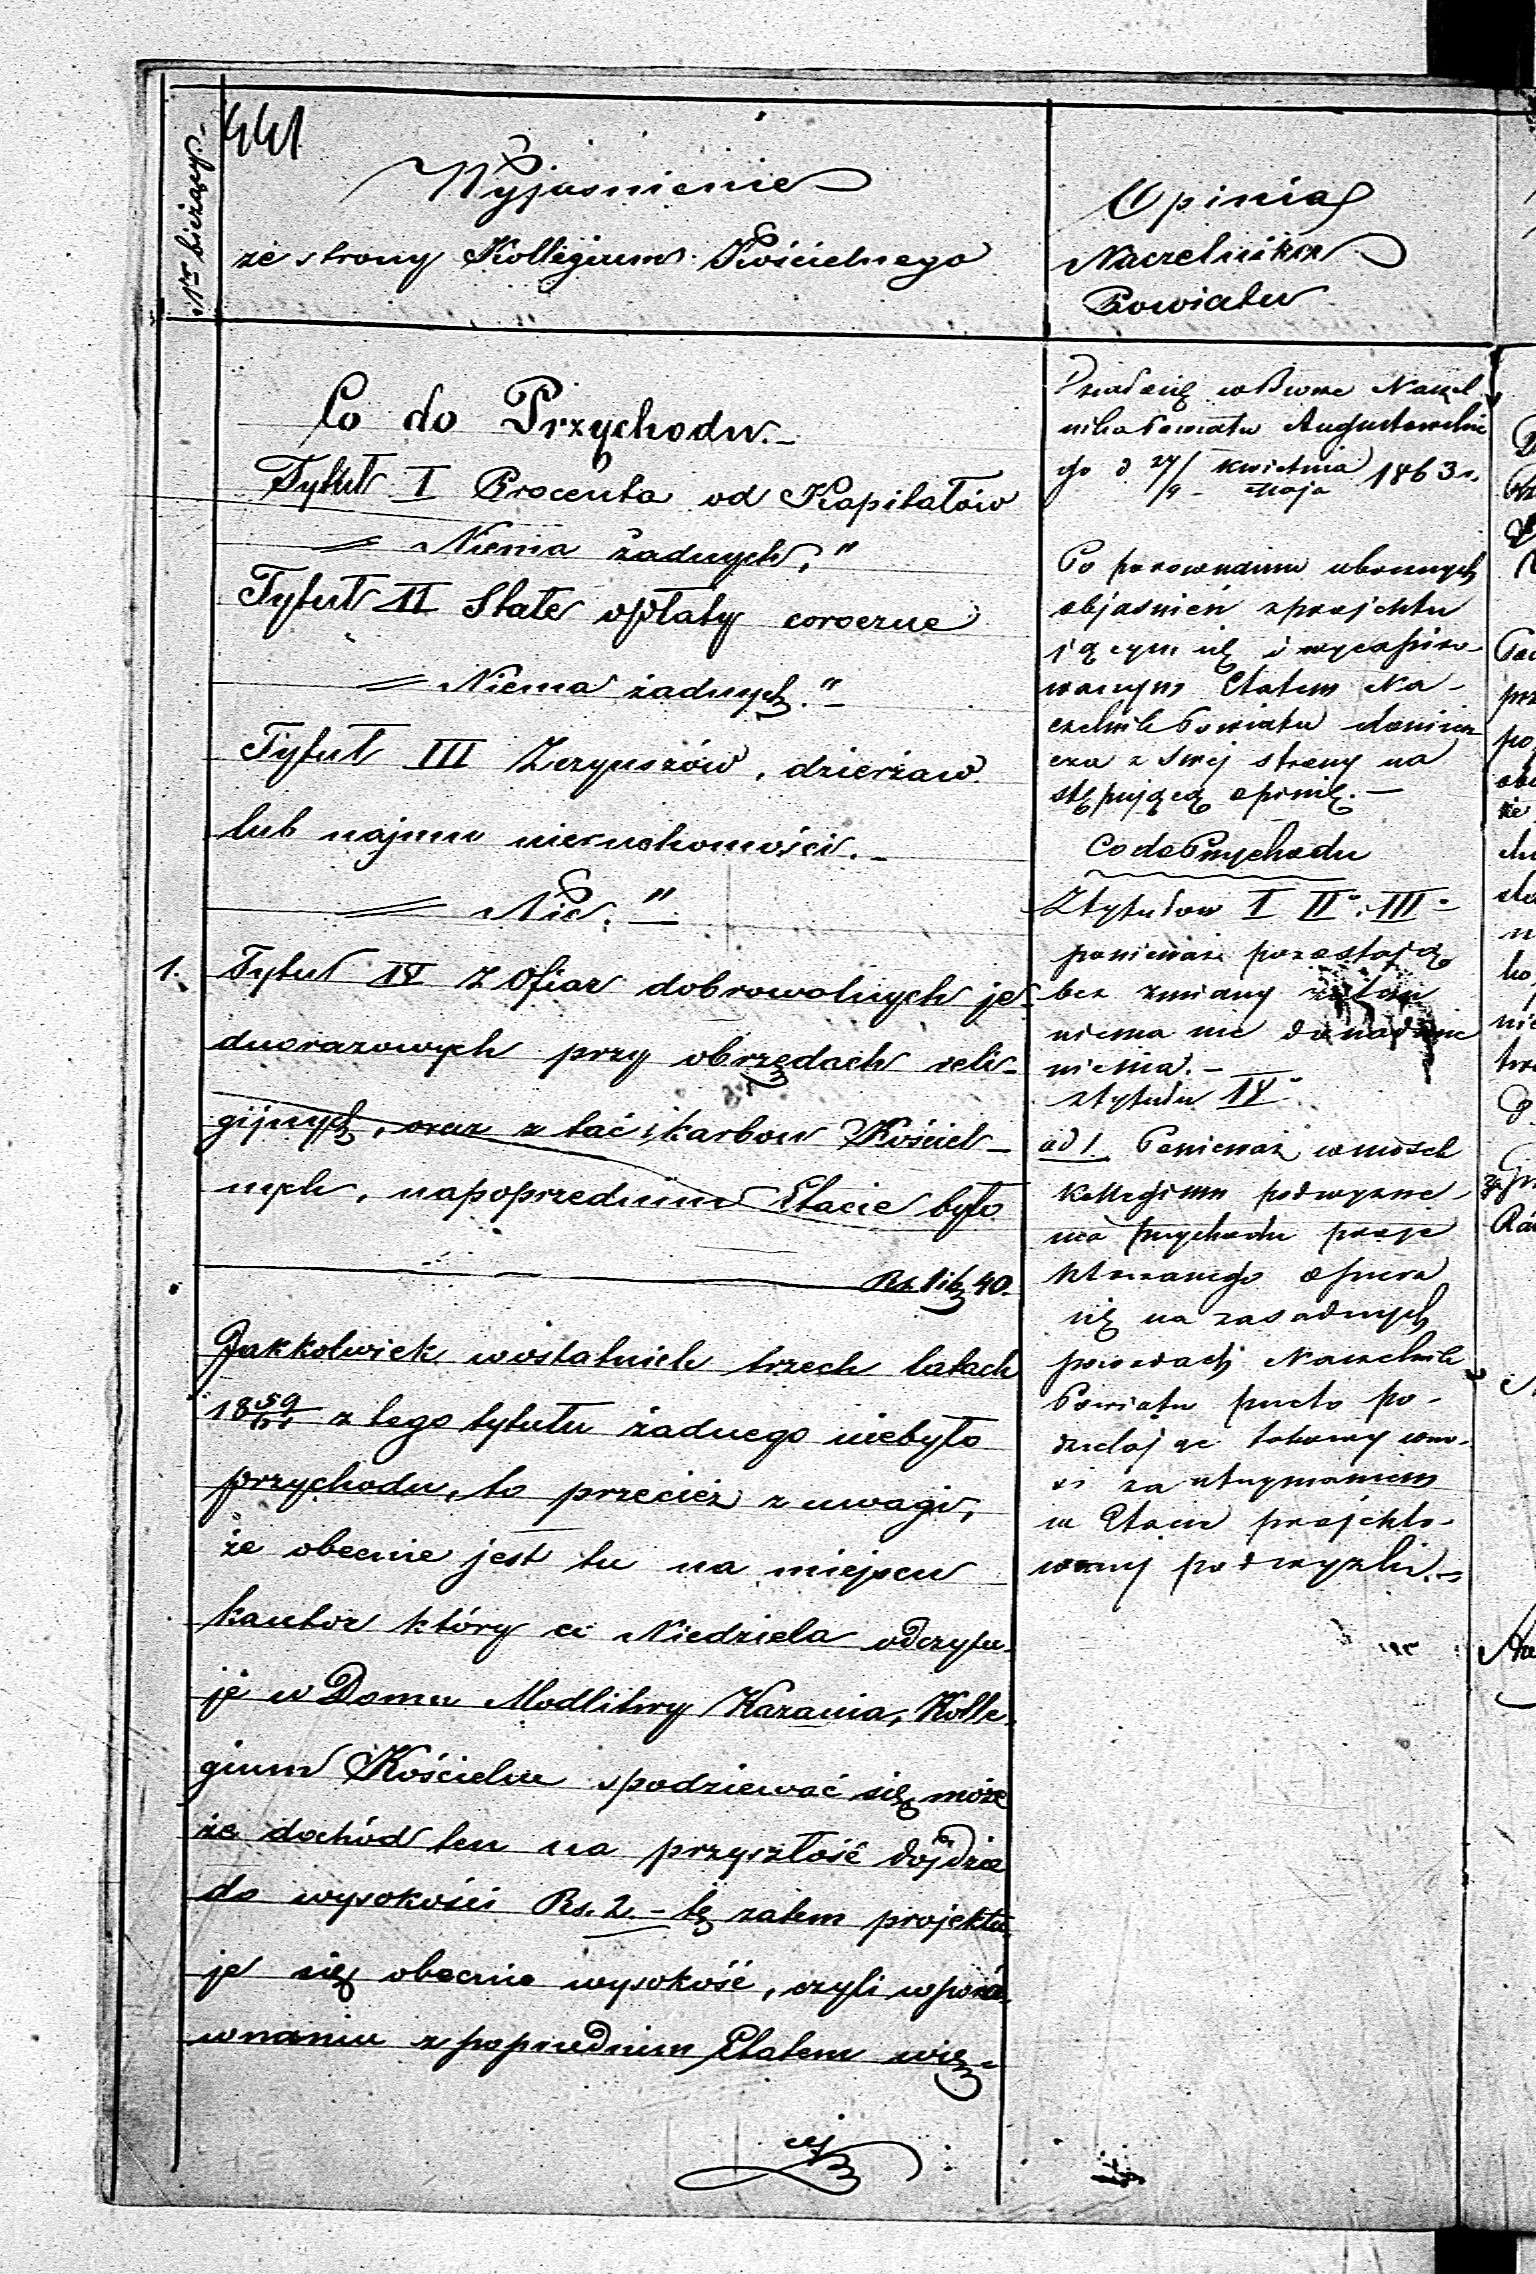 441
Nr bieżący.
Wyjasnienie
ze strony Kollegium Kościelnego
Co do Przychodu.
Tytuł I Procenta od Kapitałów
Niema żadnych."
Tytuł II Stałe opłaty coroczne
Niema żadnych."
Tytuł III Z czynszów, dzierżaw
lub najmu nieruchomości.
Nic."
1. Tytuł IV Z Ofiar dobrowolnych je-
dnorazowych przy obrzędach reli-
gijnych, oraz z tac i skarbon Kościel-
nych, na poprzednim Etacie było
40.
Jakkolwiek w ostatnich trzech latach
1859/61 z tego tytułu żadnego niebyło
przychodu, to przecież z uwagi,
że obecnie jest tu na miejscu
kantor który co Niedziela odczytu-
je w Domu Modlitwy Kazania, Kolle-
gium Kościelne spodziewać się może
że dochód ten na przyszłość dójdzie
do wysokości Rs. 2. – tę zatem projektu-
je się obecnie wysokość, czyli w poró-
wnaniu z poprzednim Etatem wię-
Opinia
Naczelnika
Powiatu
Działo się w Biurze Naczel
nika Powiatu Augustowskie
go d 27/9 Kwietnia/Maja 1863 r.
Po porownaniu ubocznych
objasnień z projektu
jącym się i
Etatem Na-
czelnik Powiatu
cza z swej strony na
stępującą opinię.
Co do Przychodu
Z tytułow I II. III
ponieważ pozostają
bez zmiany zatem
niema nic do nadmie
nienia.
z tytułu IV
ad 1. Ponieważ wniosek
Kollegium podwyzsze
nia przychodu proje
ktowanego opiera
się na zasadnych
powodach Naczelnik
Powiatu przeto po-
dzielając takowy wno-
si za utrzymaniem
w Etacie projekto-
wanej podwyzki.